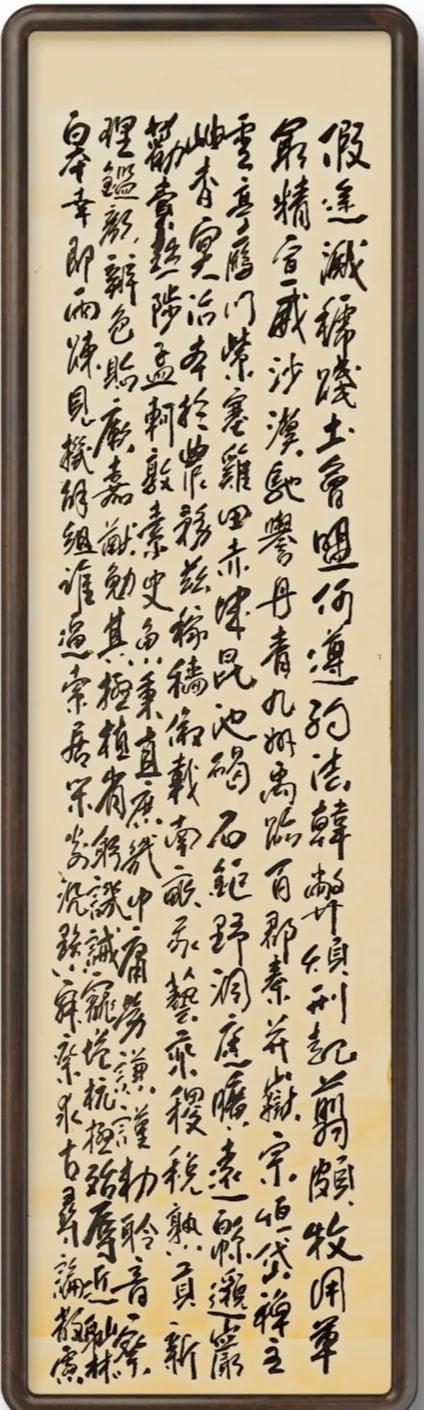 假途滅虢踐土會盟何遵約法韓弊煩刑起翦頗牧用軍
最精宣威沙漠馳譽丹青九州禹跡百郡秦并嶽宗恒岱禪主
雲亭鴈門紫塞雞田赤城昆池碣石鉅野洞庭曠遠綿邈巖
岫杳冥治本於農務茲稼穡俶載南畝我藝黍稷稅熟貢新
勸賞黜陟孟軻敦素史魚秉直庶幾中庸勞謙謹勅聆音察
理鑑貌辨色貽厥嘉猷勉其祗植省躬譏誡寵增抗極殆辱近恥林
皋幸即兩疏見機解組誰逼索居閑處沉默寂寥求古尋論散慮